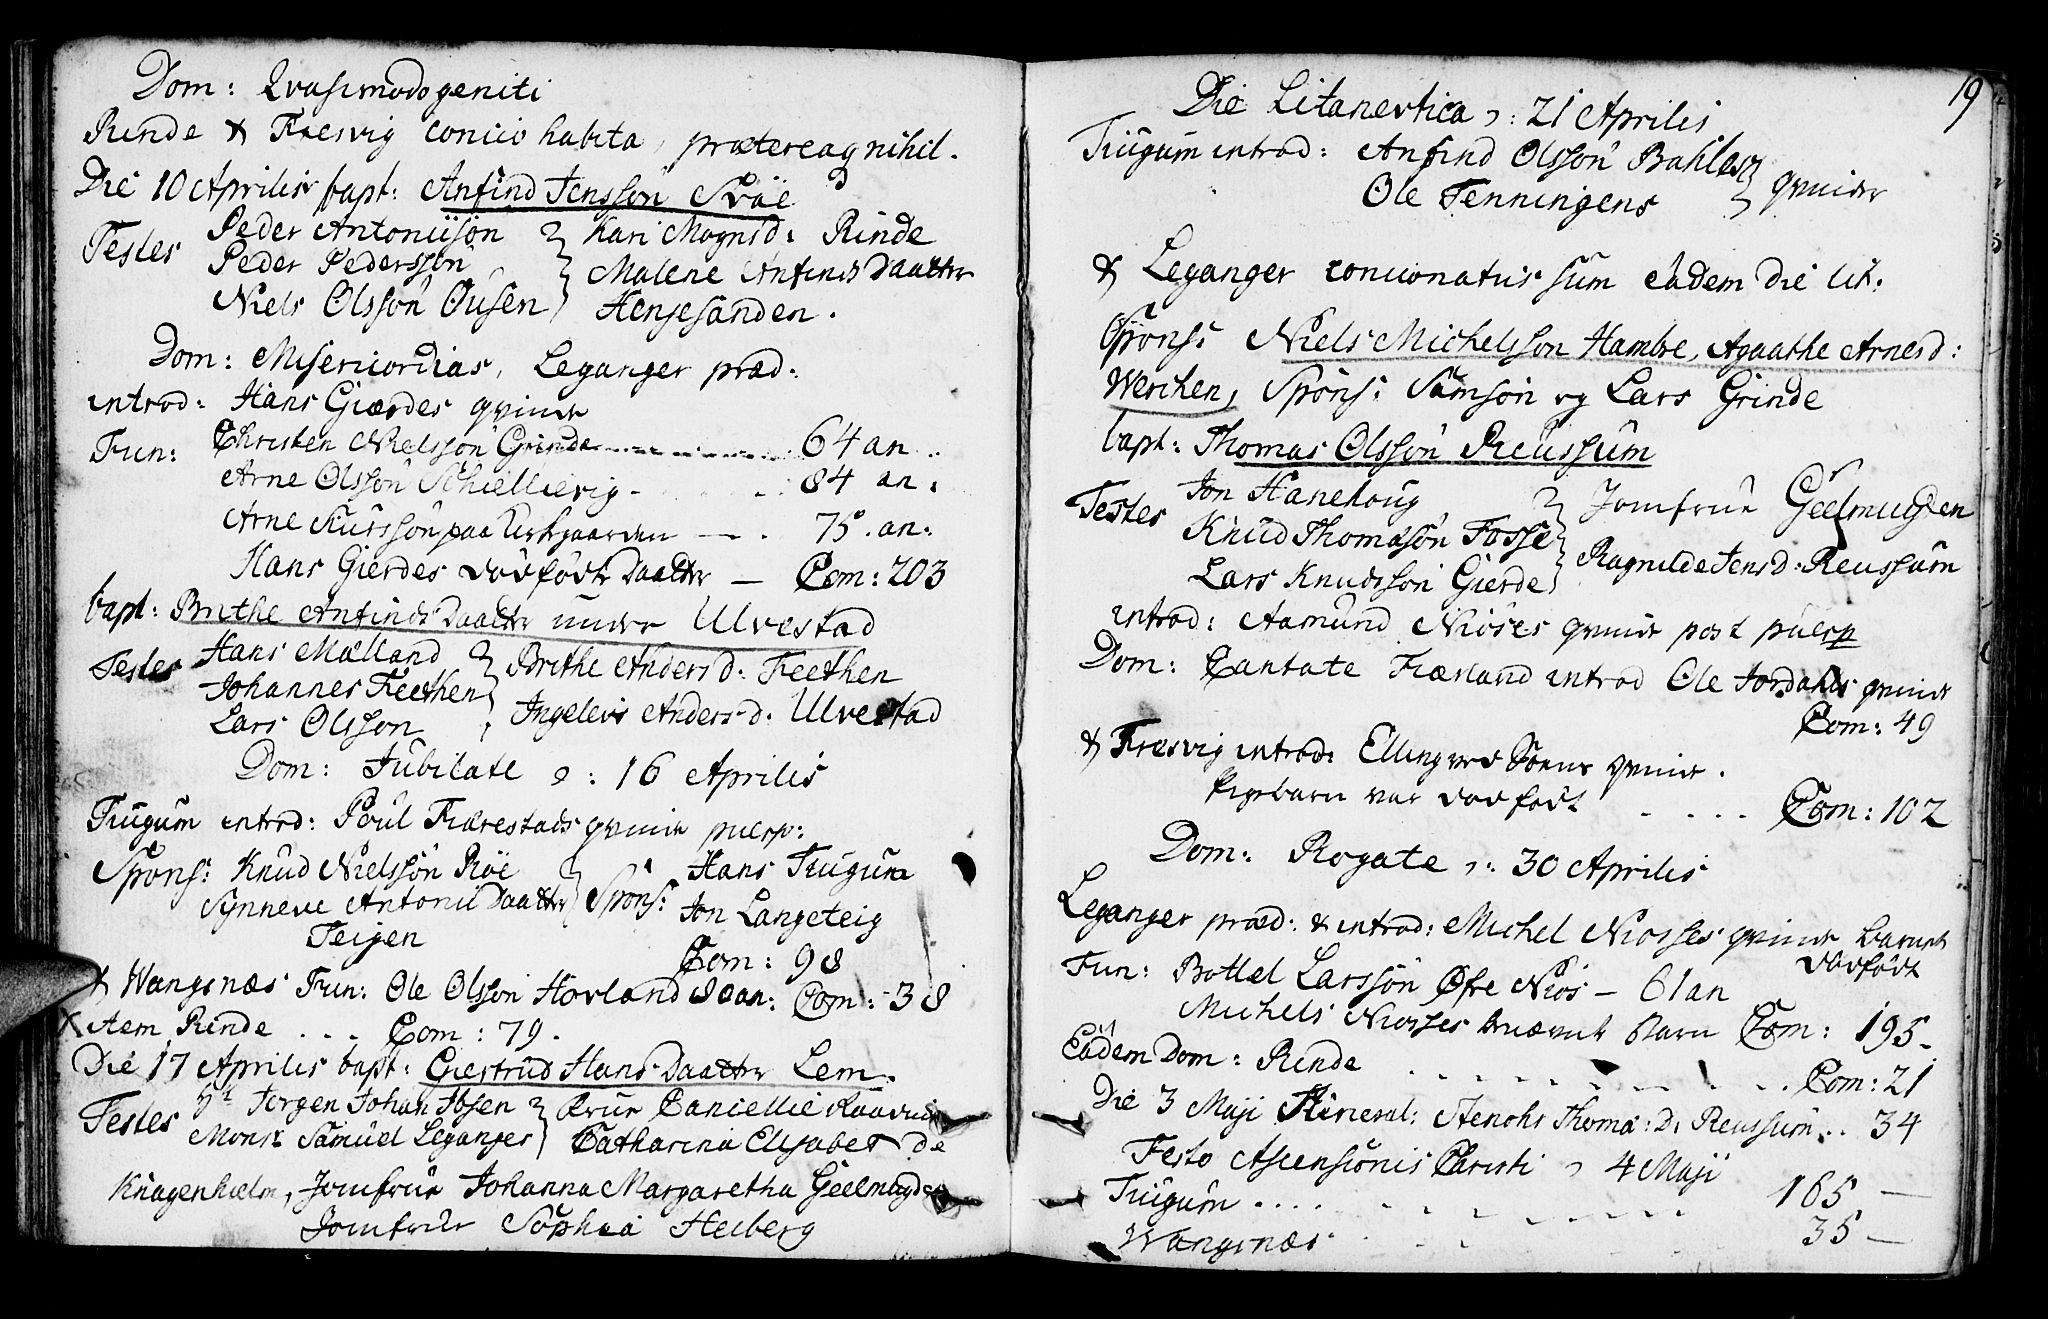 Dom: Qvasimodogeniti
Rinde & Fresvig concio habita, prætereaq nihil.
Die 10 Aprilis bapt: Anfind Jensson Svøe
Testes Peder Antoniison Kari Mognsd: Rinde
Peder Pedersson Malene Anfinds Daatter
Niels Olsson Ousen Henjesanden.
Dom: Misericordias, Leganger præd:
introd: Hans Gierdes qvinde
Fun: Christen Nielsson Grinde 64 an
Arne Olsson Schiellevig 84 an:
Arne Siursson paa Kirkgaarden 75. an:
Hans Gierdes dødfødte Daatter — Com: 203
bapt: Brithe Anfinds Daatter under Ulvestad
Testes Hans Mælland Brithe Andersd: Feethen
Johannes Feethen Ingeleiv Andersd: Ulvestad
Lars Olsson
Dom: Jubilate ɔ: 16 Aprilis
Tiugum introd: Poul Fiærestads qvinde puerp:
Spons: Knud Nielsson Røe Spons: Hans Tiugum
Synneve Antonii Daatter Jon Langeteig
Teigen
Com: 98
& Wangsnæs Fun: Ole Olsson Hovland 80 an: Com: 38
Item Rinde . . . Com: 79.
Die 17 Aprilis bapt: Giertrud Hans Daatter Lem.
Testes Hr Jørgen Johan Ibsen Frue Daniellie
Monsr Samuel Leganger Catharina Elisabet de
Knagenhielm, Jomfrue Johanna Margaretha Geelmuyden
Jomfrue Sophia Heiberg
19
Die Litanevtica ɔ: 21 Aprilis
Tiugum introd: Anfind Olsson Bahles qvinder
Ole Fenningens
& Leganger concionatus sum eadem die lit:
Spons: Niels Michelsson Hambre, Agaathe Arnesd:
Werchen, Spons: Samson og Lars Grinde
bapt: Thomas Olsson Reussum
Testes Jon Hanehoug Jomfrue Geelmuyden
Knud Thomason Fosse
Lars Knudsson Gierde Ragnilde Jensd: Reussum
introd: Aamund Niøses qvinde post puerp
Dom: Cantate Fiærland introd Ole Jordahls qvinde
Com: 49
& Fresvig introd: Elling ved Søens qvinde.
Pigebarn var dødfødt . . . . Com: 102
Dom: Rogate ɔ: 30 Aprilis
Leganger præd: & introd: Michel Niøsses qvinde barnet
dødfødt
Fun: Bottel Larsson Øfre Niøs – 61 an
Michels Niøsses barn Com: 195.
Eadem Dom: Rinde Com: 21
Die 3 Maji Thomæ: D: Reussum . . 34
Festo Ascensionis Christi ɔ 4 Maji
Tiugum . . . . 165 —
Wangsnæs 35 —